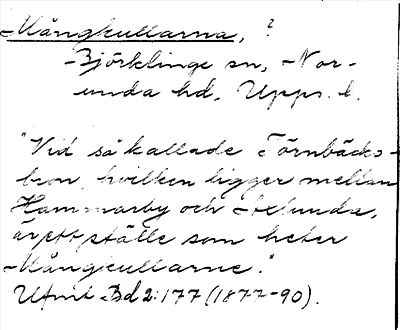 Mångkullarna, ?
Björklinge sn, Nor-
unda hd, Upps. l.
"Vid så kallade Törnbäcks-
bron, hvilken ligger mellan
Hammarby och
är ett ställe som heter
Mångkullarne."
Ufmt Bd 2:177 (1877-90).